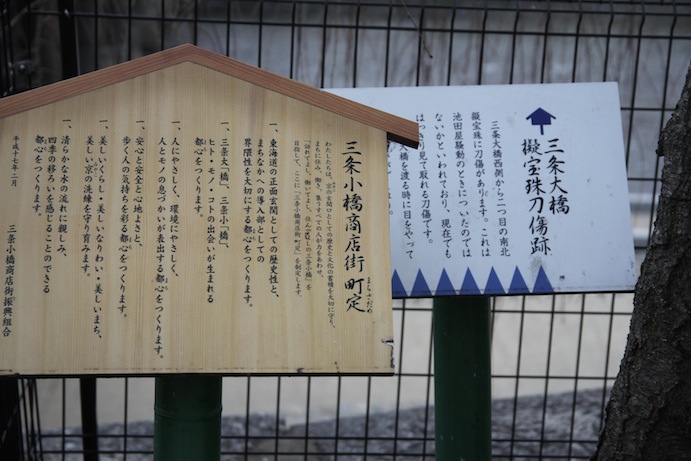 三条小橋商店街 町定
まちさだめ
わたしたちは、京の玄関口としての歴史と文化の蓄積を大切に守り、
まちに住み、働き、集うすべての人が力をあわせ、
「訪れてよし、働いてよし、住んでよしの三条小橋」を
目指して、ここに「三条小橋商店街町定」を制定します。
一、東海道の正面玄関としての歴史性と、
まちなかへの導入部としての
界隈性を大切にする都心をつくります。
一、「三条大橋」、「三条小橋」、
ヒト・モノ・コトの出会いが生まれる
都心をつくります。
一、人にやさしく、環境にやさしく、
人とモノの息づかいが表出する都心をつくります。
一、安心と安全と心地よさと、
歩く人の気持ちを彩る都心をつくります。
一、美しいくらし・美しいなりわい・美しいまち、
美しい京の洗練を守り育みます。
一、清らかな水の流れに親しみ、
四季の移ろいを感じることのできる
都心をつくります。
平成十七年二月
三条小橋商店街振興組合
三条大橋
擬宝珠刀傷跡
三条大橋西側から二つ目の南北
擬宝珠に刀傷があります。これは
池田屋騒動のときについたのでは
ないかといわれており、現在でも
はっきり見て取れる刀傷です。
大橋を渡る時に目をやって